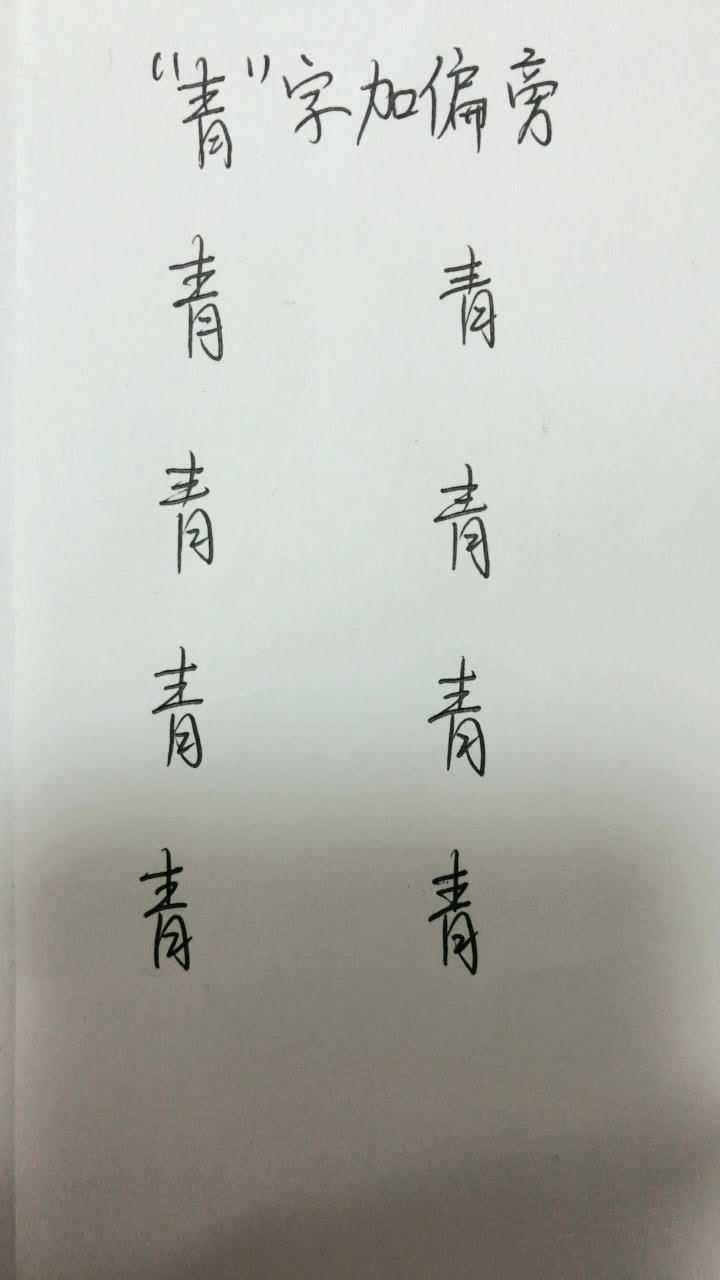 “青”字加偏旁
青 青
青 青
青 青
青 青